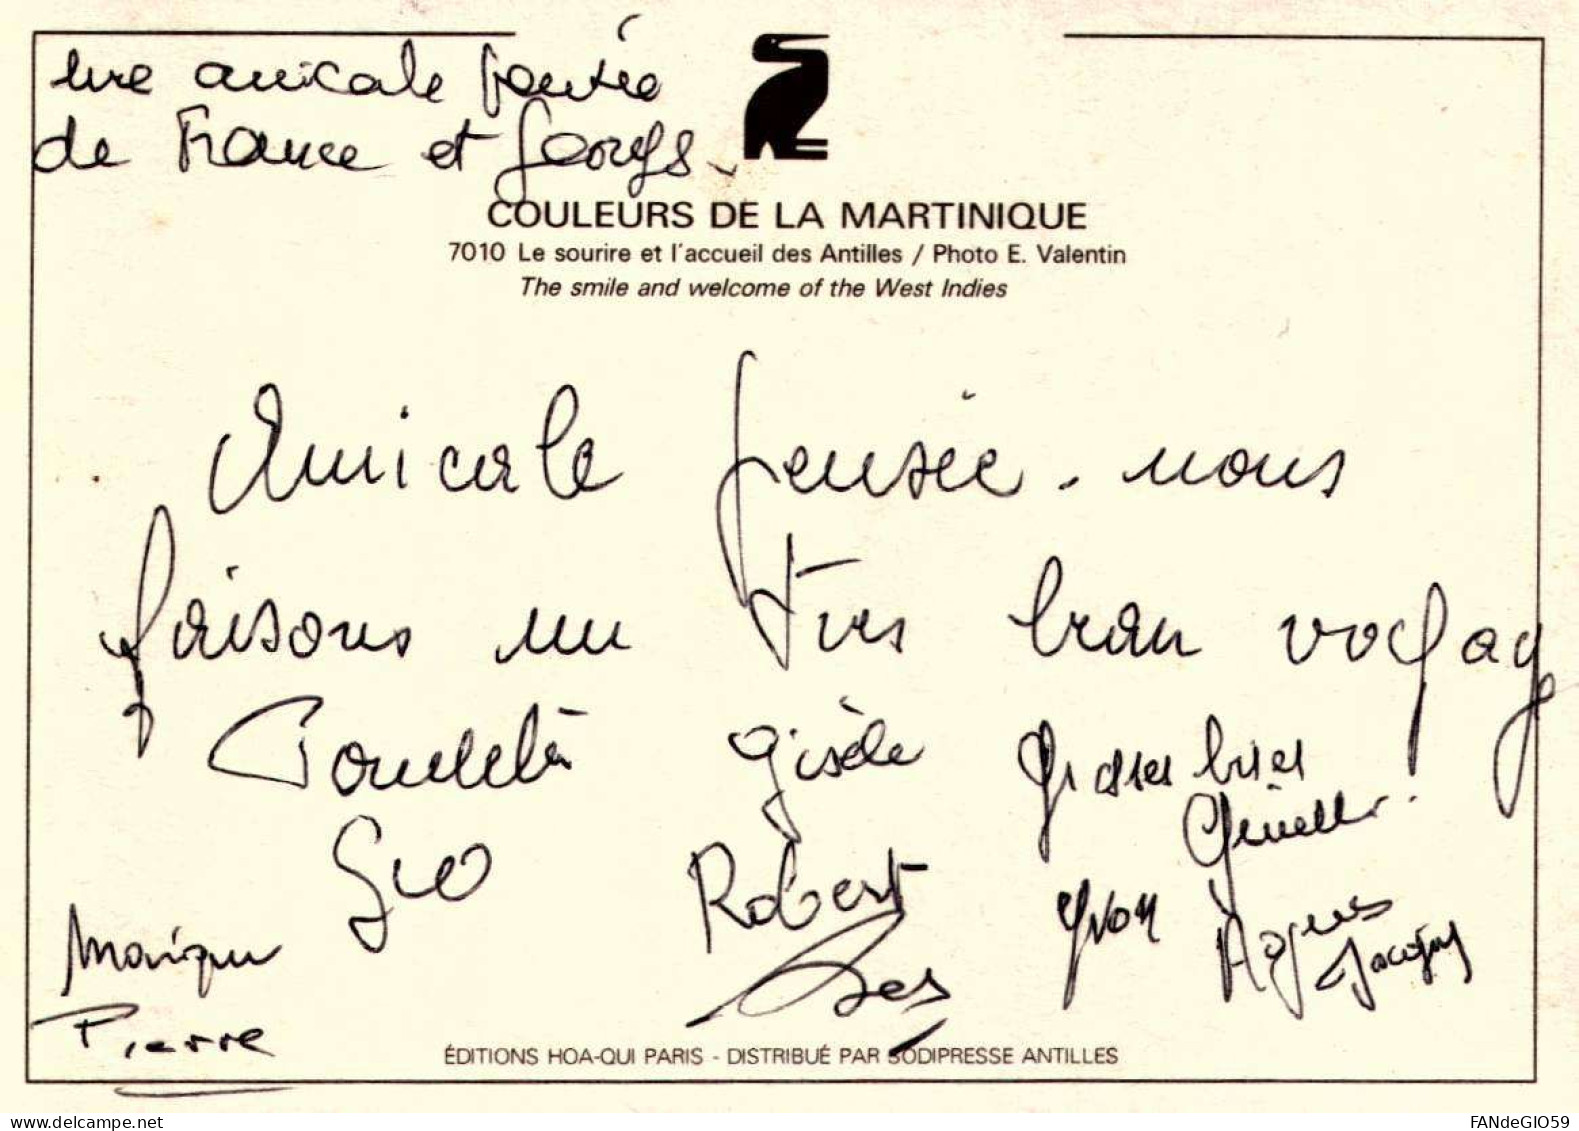 Une amicale pensée
de France et Georges.
COULEURS DE LA MARTINIQUE
7010 Le sourire et l'accueil des Antilles / Photo E. Valentin
The smile and welcome of the West Indies
Amicale pensée. nous
faisons un très bon voyage
Gisèle Grosses bises
Ginette
Geo Robert Yvon Agnès
Jacques
Monique
Pierre
ÉDITIONS HOA-QUI PARIS - DISTRIBUÉ PAR SODIPRESSE ANTILLES
www.delcampe.net
FANdeGIO59